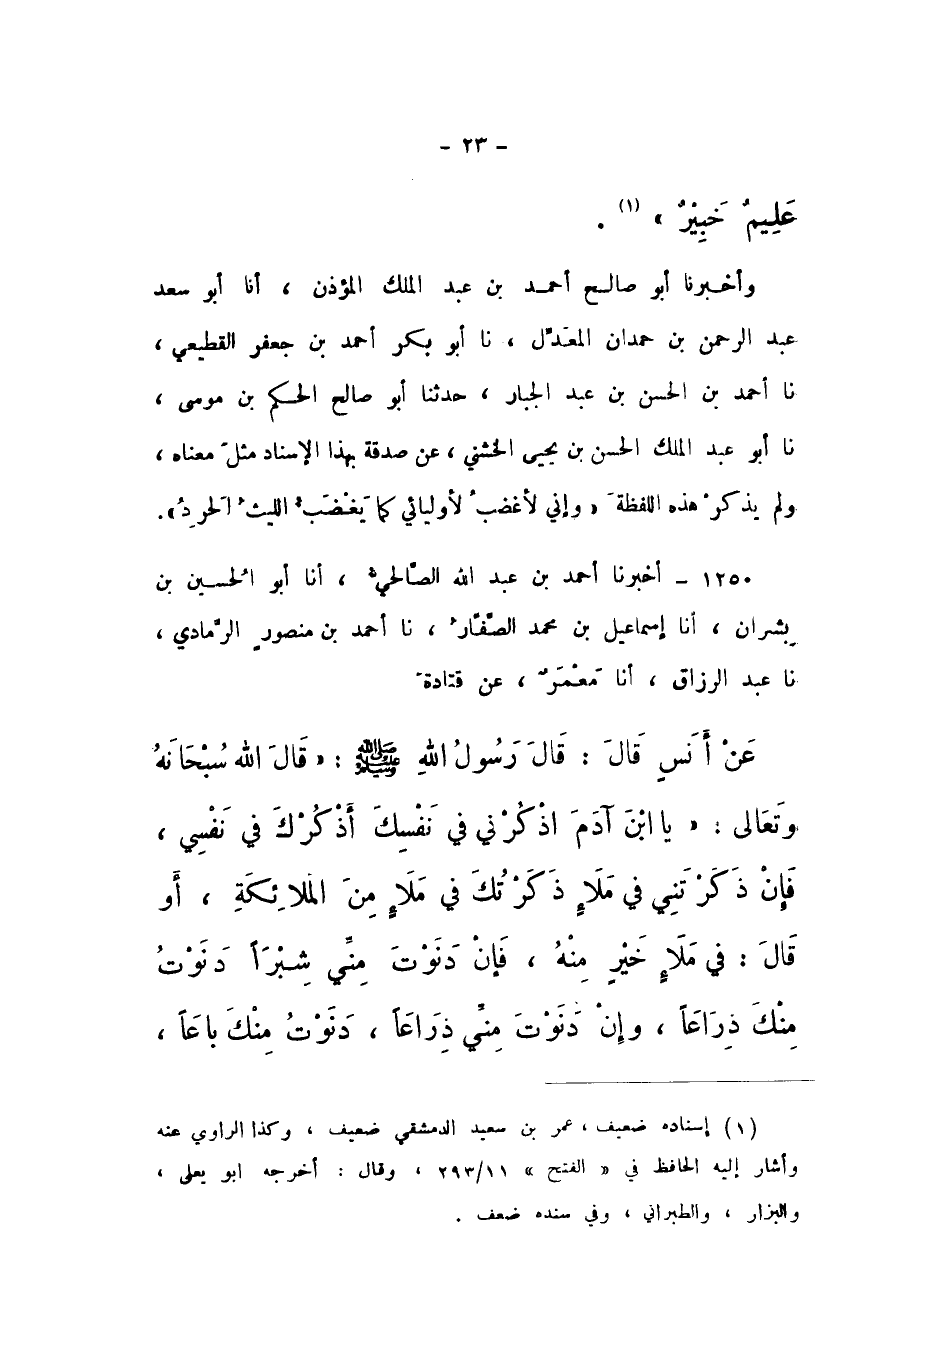 - ٢٣ -
عَلِيمٌ خَبِيْرٌ » (١) .
وأخبرنا أبو صالح أحمد بن عبد الملك المؤذن ، أنا أبو سعد
عبد الرحمن بن حمدان المعَدّل ، نا أبو بكر أحمد بن جعفر القطيعي ،
نا أحمد بن الحسن بن عبد الجبار ، حدثنا أبو صالح الحكم بن موسى ،
نا أبو عبد الملك الحسن بن يحيى الخشني ، عن صدقة بهذا الإسناد مثلَ معناه ،
ولم يذكرْ هذه اللفظةَ « وإني لأغضبُ لأوليائي كما يَغْضَبُ الليثُ الحَرِدُ» .
١٢٥٠ - أخبرنا أحمد بن عبد الله الصّالحيُّ ، أنا أبو الحُسين بن
بِشران ، أنا إسماعيل بن محمد الصَّفَّارُ ، نا أحمد بن منصورٍ الرَّمادي ،
نا عبد الرزاق ، أنا مَعْمَرٌ ، عن قتادةَ
عَنْ أَنَسٍ قَالَ : قَالَ رَسُولُ اللهِ ﷺ : « قَالَ اللهُ سُبْحَانَهُ
وَتَعَالى : « يا ابْنَ آدَمَ اذْكُرْني في نَفْسِكَ أَذْكُرْكَ في نَفْسِي ،
فَإِنْ ذَكَرْتَنِي في مَلَاءٍ ذَكَرْتُكَ في مَلَاءٍ مِنَ المَلائِكَةِ ، أَو
قَالَ : في مَلَاءٍ خَيْرٍ مِنْهُ ، فَإنْ دَنَوْتَ مِنِّي شِبْرَاً دَنَوْتُ
مِنْكَ ذِرَاعَاً ، وإِنْ دَنَوْتَ مِنِّي ذِرَاعَاً ، دَنَوْتُ مِنْكَ بَاعَاً ،
(١) إسناده ضعيف ، عمر بن سعيد الدمشقي ضعيف ، وكذا الراوي عنه
وأشار إليه الحافظ في « الفتح » ٢٩٣/١١ ، وقال : أخرجه ابو يعلى ،
والبزار ، والطبراني ، وفي سنده ضعف .